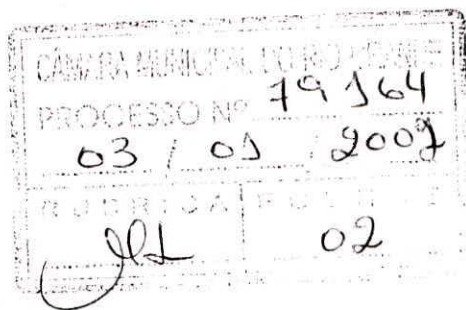 CÂMARA MUNICIPAL DO RIO
PROCESSO Nº 79164
03 / 01 / 2007
RUBRICA
02